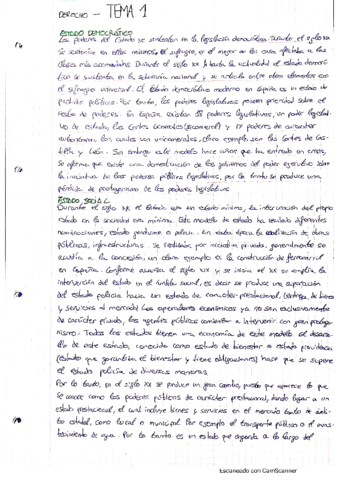 DERECHO - TEMA 1
ESTADO DEMOCRÁTICO
Los poderes del Estado se sustentan en la legislación democrática. Durante el siglo XIX
se sustenta en ellos mismos. El sufragio, en el mejor de los casos afectaba a las
clases más acomodadas. Durante el siglo XX y hasta la actualidad el estado democrá-
tico se sustenta en la soberanía nacional y se articula entre otros elementos con
el sufragio universal. El Estado democrático moderno en España es un estado de
partidos políticos. Por tanto, los poderes legislativos poseen prioridad sobre el
resto de poderes. En España existen 18 poderes legislativos, un poder legislati-
vo de estado, las Cortes Generales (bicameral) y 17 poderes de
autonómicos los cuales son unicamerales, como ejemplo son las Cortes de Cas-
tilla y León. Sin embargo este modelo hace años que ha entrado en crisis,
se afirma que existe una de los gobiernos del poder ejecutivo sobre
la iniciativa de los poderes públicos legislativos, por lo tanto se produce una
pérdida de protagonismo de los poderes legislativos
ESTADO SOCIAL
Durante el siglo XIX el Estado era un estado mínimo, la intervención del propio
estado en la sociedad era mínima. Este modelo de estado ha recibido diferentes
nominaciones, estado gendarme o policía. En esta época la realización de obras
públicas, infraestructuras... Se realizaba por iniciativa privada, generalmente se
acudía a la concesión, un claro ejemplo es la construcción de ferrocarril
en España. Conforme avanza el siglo XIX y se inicia el XX se amplía la
intervención del estado en el ámbito social, es decir se produce una superación
del estado policía hacia un estado de carácter prestacional (entrega de bienes
y servicios al mercado). Los operadores económicos ya no son exclusivamente
de carácter privado, los agentes públicos comienzan a intervenir con gran protago-
nismo. Todos los estados tienen una economía de este modelo al desarro-
llo de este estado, conocido como estado de bienestar o estado providencia
(estado que garantiza el bienestar y tiene obligaciones) hace que se supere
el estado policía de diversas maneras.
Por lo tanto, en el siglo XX se produce un gran cambio, puesto que aparece lo que
se conoce como los poderes públicos de carácter prestacional, dando lugar a un
estado prestacional, el cual incluye bienes y servicios en el mercado tanto de ámbi-
to estatal, como local o municipal. Por ejemplo el transporte público o el abas-
tecimiento de agua. Por lo tanto es un estado que expande a lo largo del
Escaneado con CamScanner